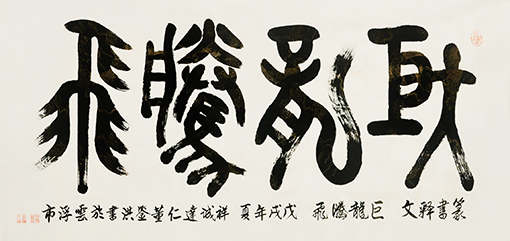 巨龍騰飛
篆書釋文 巨龍騰飛 戊戌年夏 祥誠達仁董洪書於雲浮市